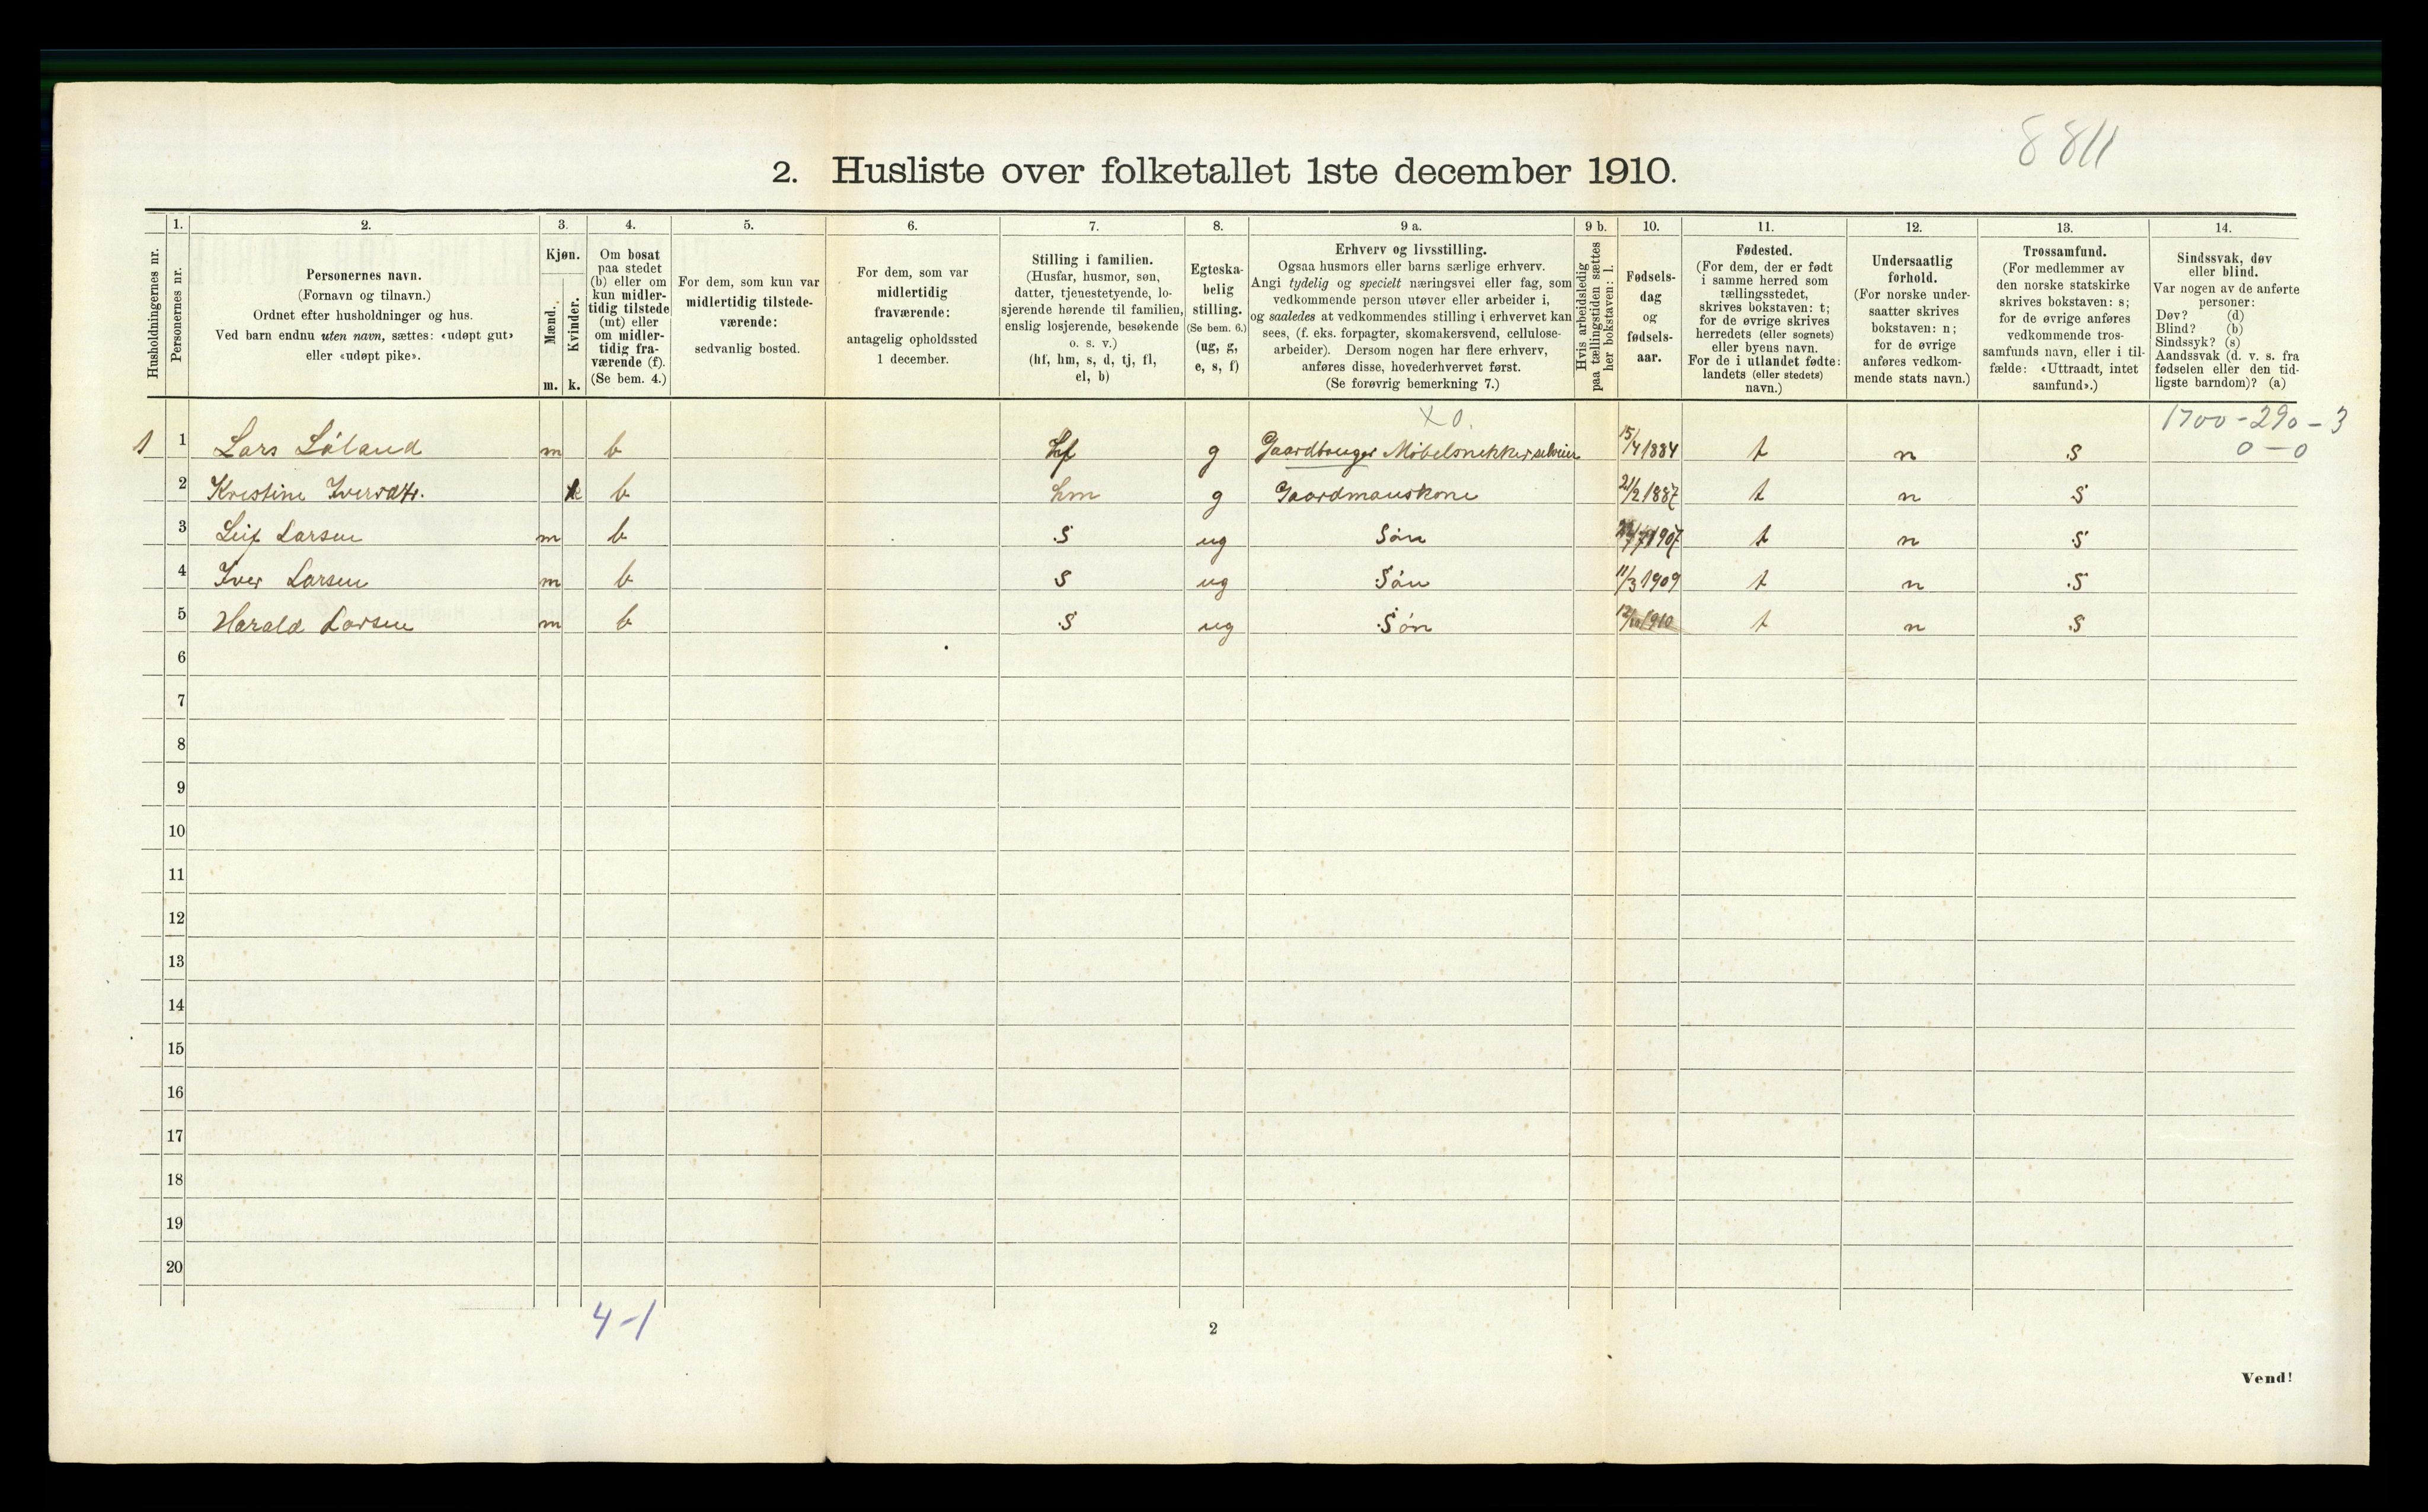 8811
2. Husliste over folketallet 1ste december 1910.
Husholdningernes nr.
1.
Personernes nr.
2.
Personernes navn.
(Fornavn og tilnavn.)
Ordnet efter husholdninger og hus.
Ved barn endnu uten navn, sættes: «udøpt gut»
eller «udøpt pike».
3.
Kjøn.
Mænd.
Kvinder.
m. k.
4.
Om bosat
paa stedet
(b) eller om
kun midler-
tidig tilstede
(mt) eller
om midler-
tidig fra-
værende (f).
(Se bem. 4.)
5.
For dem, som kun var
midlertidig tilstede-
værende:
sedvanlig bosted.
6.
For dem, som var
midlertidig
fraværende:
antagelig opholdssted
1 december.
7.
Stilling i familien.
(Husfar, husmor, søn,
datter, tjenestetyende, lo-
sjerende hørende til familien,
enslig losjerende, besøkende
o. s. v.)
(hf, hm, s, d, tj, fl,
el, b)
8.
Egteska-
belig
stilling.
(Se bem. 6.)
(ug, g,
e, s, f)
9 a.
Erhverv og livsstilling.
Ogsaa husmors eller barns særlige erhverv.
Angi tydelig og specielt næringsvei eller fag, som
vedkommende person utøver eller arbeider i,
og saaledes at vedkommendes stilling i erhvervet kan
sees, (f. eks. forpagter, skomakersvend, cellulose-
arbeider). Dersom nogen har flere erhverv,
anføres disse, hovederhvervet først.
(Se forøvrig bemerkning 7.)
9 b.
Hvis arbeidsledig
paa tællingstiden sættes
her bokstaven: l.
10.
Fødsels-
dag
og
fødsels-
aar.
11.
Fødested.
(For dem, der er født
i samme herred som
tællingsstedet,
skrives bokstaven: t;
for de øvrige skrives
herredets (eller sognets)
eller byens navn.
For de i utlandet fødte:
landets (eller stedets)
navn.)
12.
Undersaatlig
forhold.
(For norske under-
saatter skrives
bokstaven: n;
for de øvrige
anføres vedkom-
mende stats navn.)
13.
Trossamfund.
(For medlemmer av
den norske statskirke
skrives bokstaven: s;
for de øvrige anføres
vedkommende tros-
samfunds navn, eller i til-
fælde: «Uttraadt, intet
samfund».)
14.
Sindssvak, døv
eller blind.
Var nogen av de anførte
personer:
Døv? (d)
Blind? (b)
Sindssyk? (s)
Aandssvak (d. v. s. fra
fødselen eller den tid-
ligste barndom)? (a)
X 0. 1700-290-3
0-0
1 1 Lars Løland m b hf g Gaardbruger Møbelsnekker 15/4 1884 t n s
2 Kristine k b hm g Gaardmanskone 21/2 1887 t n s
3 Leif Larsen m b s ug Søn 1907 t n s
4 Iver Larsen m b s ug Søn 11/3 1909 t n s
5 Harald Larsen m b s ug Søn 1910 t n s
6
7
8
9
10
11
12
13
14
15
16
17
18
19
20
4-1
2
Vend!